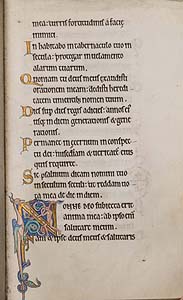 mea: turris fortitudinis a facie
inimici.
In habitabo in tabernaculo tuo in
secula: protegar in uelamento
alarum tuarum.
Quoniam tu deus meus exaudisti
orationem meam: dedisti heredi
tatem timentibus nomen tuum.
Dies sup dies regis adicies: annos ei
usq in diem generationis & gene
rationis.
Permanet in eternum in conspec
tu dei: misediam & ueritate eius
quis requiret.
Sic psalmum dicam nomini tuo
in seculum seculi: ut reddam uo
ta mea de die in diem.
Nonne deo subiecta erit
anima mea: ab ipso eni
salutare meum.
Nam & ipse deus meus & salutaris